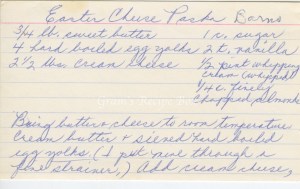 Easter Cheese Paska Barns
3/4 lb. sweet butter 1 c. sugar
4 hard boiled egg yolks 2 t. vanilla
2 1/2 lbs cream cheese 1/2 pint whipping
cream (whipped)
1/4 c. finely
chopped almonds
Bring butter & cheese to room temperature
Cream butter & sieved hard boiled
egg yolks (I put mine through a
fine strainer,) add cream cheese,